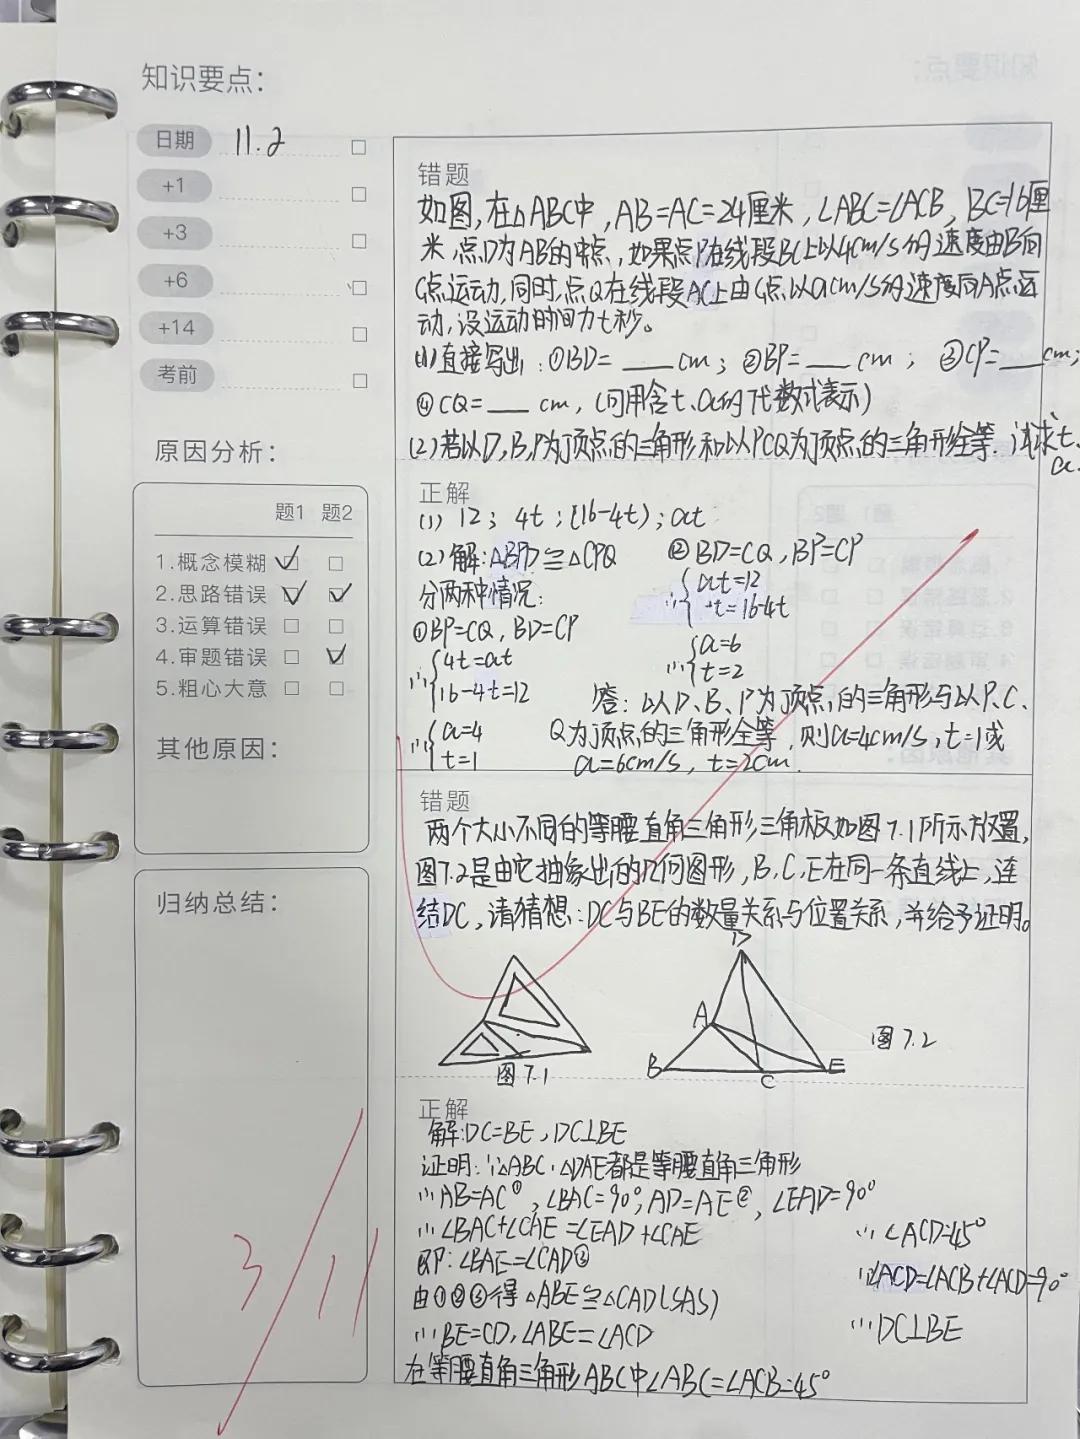 知识要点：
日期 11.2
+1
+3
+6
+14
考前
原因分析：
题1 题2
1.概念模糊
2.思路错误
3.运算错误
4.审题错误
5.粗心大意
其他原因：
归纳总结：
错题
如图,在△ABC中,AB=AC=24厘米,∠ABC=∠ACB,BC=16厘
米,点D为AB的中点,如果点P在线段BC上以4cm/s的速度由B向
C点运动,同时,点Q在线段AC上由C点以acm/s的速度向A点运
动,设运动时间为t秒。
(1)直接写出:①BD=___cm;②BP=___cm;③CP=___cm;
④CQ=___cm,(可用含t、a的代数式表示)
(2)若以D,B,P为顶点的三角形和以PCQ为顶点的三角形全等.试求t、
a.
正解
(1) 12; 4t;(16-4t);at
(2)解:△BPD≌△CPQ
分两种情况:
①BP=CQ,BD=CP
∴{4t=at
16-4t=12
∴{a=4
t=1
②BD=CQ,BP=CP
∴{at=12
4t=16-4t
∴{a=6
t=2
答:以D、B、P为顶点的三角形与以P、C、
Q为顶点的三角形全等,则a=4cm/s,t=1或
a=6cm/s,t=2cm.
错题
两个大小不同的等腰直角三角形三角板如图7.1所示放置,
图7.2是由它抽象出的几何图形,B,C,E在同一条直线上,连
结DC,请猜想:DC与BE的数量关系与位置关系,并给予证明。
图7.1
D
A
B
C
E
图7.2
正解
解:DC=BE,DC⊥BE
证明:∵△ABC·△DAE都是等腰直角三角形
∴AB=AC①,∠BAC=90°,AD=AE②,∠EAD=90°
∴∠BAC+∠CAE=∠EAD+∠CAE
即:∠BAE=∠CAD③
由①②③得△ABE≌△CAD(SAS)
∴BE=CD,∠ABE=∠ACD
在等腰直角三角形ABC中∠ABC=∠ACB=45°
∴∠ACD=45°
∴∠ACD=∠ACB+∠ACD=90°
∴DC⊥BE
3/11